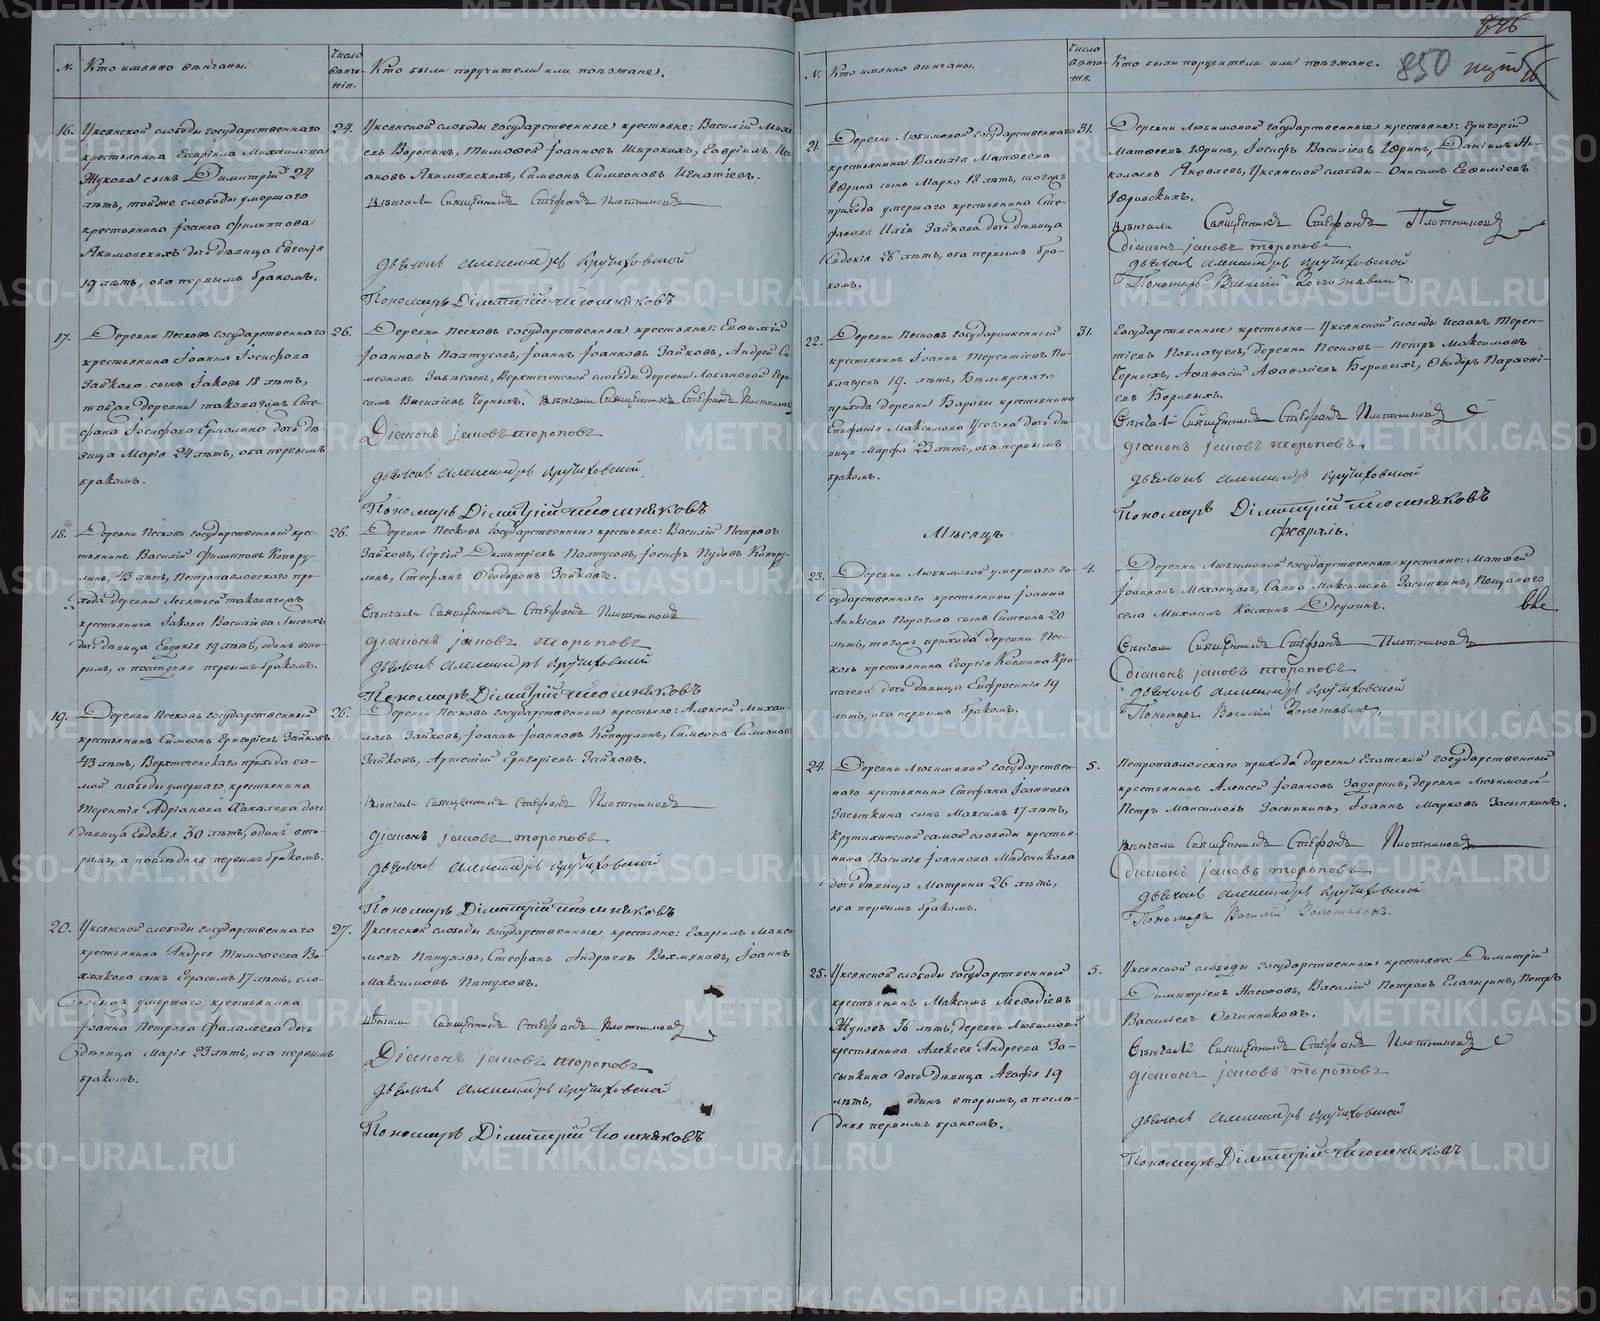 846
850
№.
Кто именно вѣнчаны.
Число вѣнчанія.
Кто были поручители или поѣзжане.
16.
Уксянской слободы государственнаго
крестьянина Гавріила Михайлова
Жукова сынъ Димитрій 24
лѣтъ, той же слободы умершаго
крестьянина Іоанна Филиппова
Якимовскихъ дочь дѣвица Евгенія
19 лѣтъ, оба первымъ бракомъ.
24.
Уксянской слободы государственные крестьяне: Василій Миха-
евъ Воронинъ, Тимофей Іоанновъ Широкихъ, Гавріилъ
ановъ Якимовскихъ, Симеонъ Симеоновъ Игнатіевъ.
Вѣнчали Священникъ Стефанъ Плотниковъ
дьячокъ Александръ Крутиховской
Пономарь Дімитрій Тюшняковъ
17.
Деревни Песковъ государственнаго
крестьянина Іоанна Іосифова
Зайкова сынъ Іаковъ 18 лѣтъ,
той же деревни таковагожъ Сте-
фана Іосифова Ермолина дочь дѣ-
вица Марія 24 лѣтъ, оба первымъ
бракомъ.
26.
Деревни Песковъ государственные крестьяне: Евфимій
Іоанновъ Палтусовъ, Іоаннъ Іоанновъ Зайковъ, Андрей Си-
меоновъ Забѣгаевъ, Верхтеченской слободы деревни Лобановой Гера-
симъ Василіевъ Черныхъ. Вѣнчали Священникъ Стефанъ Плотниковъ
Діаконъ Іаковъ Тороповъ
дьячокъ Александръ Крутиховской
Пономарь Дімитрій Тюшняковъ
18.
Деревни Песковъ государственный крес-
тьянинъ Василій Филипповъ Копору-
линъ, 43 лѣтъ, Петропавловскаго при-
хода деревни таковагожъ
крестьянина Іакова Василіева Лисихъ
дочь дѣвица Евдокія 19 лѣтъ, одинъ вто-
рымъ, а послѣдняя первымъ бракомъ.
26.
Деревни Песковъ государственные крестьяне: Василій Петровъ
Зайковъ, Сергій Димитріевъ Палтусовъ, Іосифъ Пудовъ Копору-
линъ, Стефанъ Ѳеодоровъ Зайковъ.
Вѣнчали Священникъ Стефанъ Плотниковъ
діаконъ Іаковъ Тороповъ
дьячокъ Александръ Крутиховской
Пономарь Дімитрій Тюшняковъ
19.
Деревни Песковъ государственный
крестьянинъ Симеонъ Григоріевъ Зайковъ
43 лѣтъ, Верхтеченскаго прихода са-
мой слободы умершаго крестьянина
Терентія Адріанова дочь
дѣвица Евдокія 30 лѣтъ, одинъ вто-
рымъ, а послѣдняя первымъ бракомъ.
26.
Деревни Песковъ государственные крестьяне: Алексѣй Михаи-
ловъ Зайковъ, Іоаннъ Іоанновъ Копорулинъ, Симеонъ Симеоновъ
Зайковъ, Артемій Григоріевъ Зайковъ.
Вѣнчали Священникъ Стефанъ Плотниковъ
діаконъ Іаковъ Тороповъ
дьячокъ Александръ Крутиховской
Пономарь Дімитрій Тюшняковъ
20.
Уксянской слободы государственнаго
крестьянина Андрея Тимофеева Во-
хмякова сынъ Герасимъ 17 лѣтъ, сло-
умершаго крестьянина
Іоанна Петрова Фалалеева дочь
дѣвица Марія 23 лѣтъ, оба первымъ
бракомъ.
27.
Уксянской слободы государственные крестьяне: Гавріилъ Макси-
мовъ Пѣтуховъ, Стефанъ Андреевъ Вохмяковъ, Іоаннъ
Максимовъ Пѣтуховъ.
Вѣнчали Священникъ Стефанъ Плотниковъ
Діаконъ Іаковъ Тороповъ
дьячокъ Александръ Крутиховской
Пономарь Дімитрій Тюшняковъ
№.
Кто именно вѣнчаны.
Число вѣнчанія.
Кто были поручители или поѣзжане.
21.
Деревни Любимовой государственнаго
крестьянина Василія Матфеева
Юрина сынъ Марко 18 лѣтъ, тогожъ
прихода умершаго крестьянина Сте-
фанова Иліи Зайкова дочь дѣвица
Евдокія 28 лѣтъ, оба первымъ бра-
комъ.
31.
Деревни Любимовой государственные крестьяне: Григорій
Матфеевъ Юринъ, Іосифъ Василіевъ Юринъ, Даніилъ Ни-
колаевъ Яковлевъ, Уксянской слободы – Онисимъ Евфиміевъ
Юровскихъ.
Вѣнчали Священникъ Стефанъ Плотниковъ
Діаконъ Іаковъ Тороповъ
дьячокъ Александръ Крутиховской
Пономарь Василій Золотавинъ
22.
Деревни Песковъ государственный
крестьянинъ Іоаннъ Терентіевъ По-
благуевъ 19 лѣтъ, Бѣлоярскаго
прихода деревни Барабы крестьянина
Епифанія Максимова дочь дѣ-
вица Марфа 23 лѣтъ, оба первымъ
бракомъ.
31.
Государственные крестьяне – Уксянской слободы Исаакъ Терен-
тіевъ Поблагуевъ, деревни Песковъ – Петръ Максимовъ
Черныхъ, Аѳанасій Аѳанасіевъ Боровыхъ, Ѳедоръ Парѳені-
евъ Боровыхъ.
Вѣнчали Священникъ Стефанъ Плотниковъ
діаконъ Іаковъ Тороповъ
дьячокъ Александръ Крутиховской
Пономарь Дімитрій Тюшняковъ
Мѣсяцъ
Февраль.
23.
Деревни Любимовой умершаго го-
сударственнаго крестьянина Іоанна
Аникіева Порогина сынъ Симеонъ 20
лѣтъ, тогожъ прихода деревни Пес-
ковъ крестьянина Георгія Костина Кро-
пачева дочь дѣвица Евфросинія 19
лѣтъ, оба первымъ бракомъ.
4.
Деревни Любимовой государственные крестьяне: Матфей
Іоанновъ Механцовъ, Савва Максимовъ Засыпкинъ, Пещанаго
села Михаилъ Костинъ Деулинъ.
Вѣнчали Священникъ Стефанъ Плотниковъ
Діаконъ Іаковъ Тороповъ
дьячокъ Александръ Крутиховской
Пономарь Василій Золотавинъ.
24.
Деревни Любимовой государствен-
наго крестьянина Стефана Іоаннова
Засыпкина сынъ Максимъ 17 лѣтъ,
Крутихинской самой слободы крестья-
нина Василія Іоаннова Мѣдникова
дочь дѣвица Матрона 26 лѣтъ,
оба первымъ бракомъ.
5.
Петропавловскаго прихода деревни Елатской государственный
крестьянинъ Алексѣй Іоанновъ Задоринъ, деревни Любимовой –
Петръ Максимовъ Засыпкинъ, Іоаннъ Марковъ Засыпкинъ.
Вѣнчали Священникъ Стефанъ Плотниковъ
Діаконъ Іаковъ Тороповъ
дьячокъ Александръ Крутиховской
Пономарь Василій Золотавинъ.
25.
Уксянской слободы государственный
крестьянинъ Максимъ Меѳодіевъ
Жуковъ 56 лѣтъ, деревни Любимовой
крестьянина Алексѣя Андреева За-
сыпкина дочь дѣвица Агафія 19
лѣтъ, одинъ вторымъ, а послѣ-
дняя первымъ бракомъ.
5.
Уксянской слободы государственные крестьяне: Димитрій
Димитріевъ Насоновъ, Василій Петровъ Елагиринъ, Петръ
Василіевъ Овчинниковъ.
Вѣнчали Священникъ Стефанъ Плотниковъ
діаконъ Іаковъ Тороповъ
дьячокъ Александръ Крутиховской
Пономарь Дімитрій Тюшняковъ
METRIKI.GASO-URAL.RU